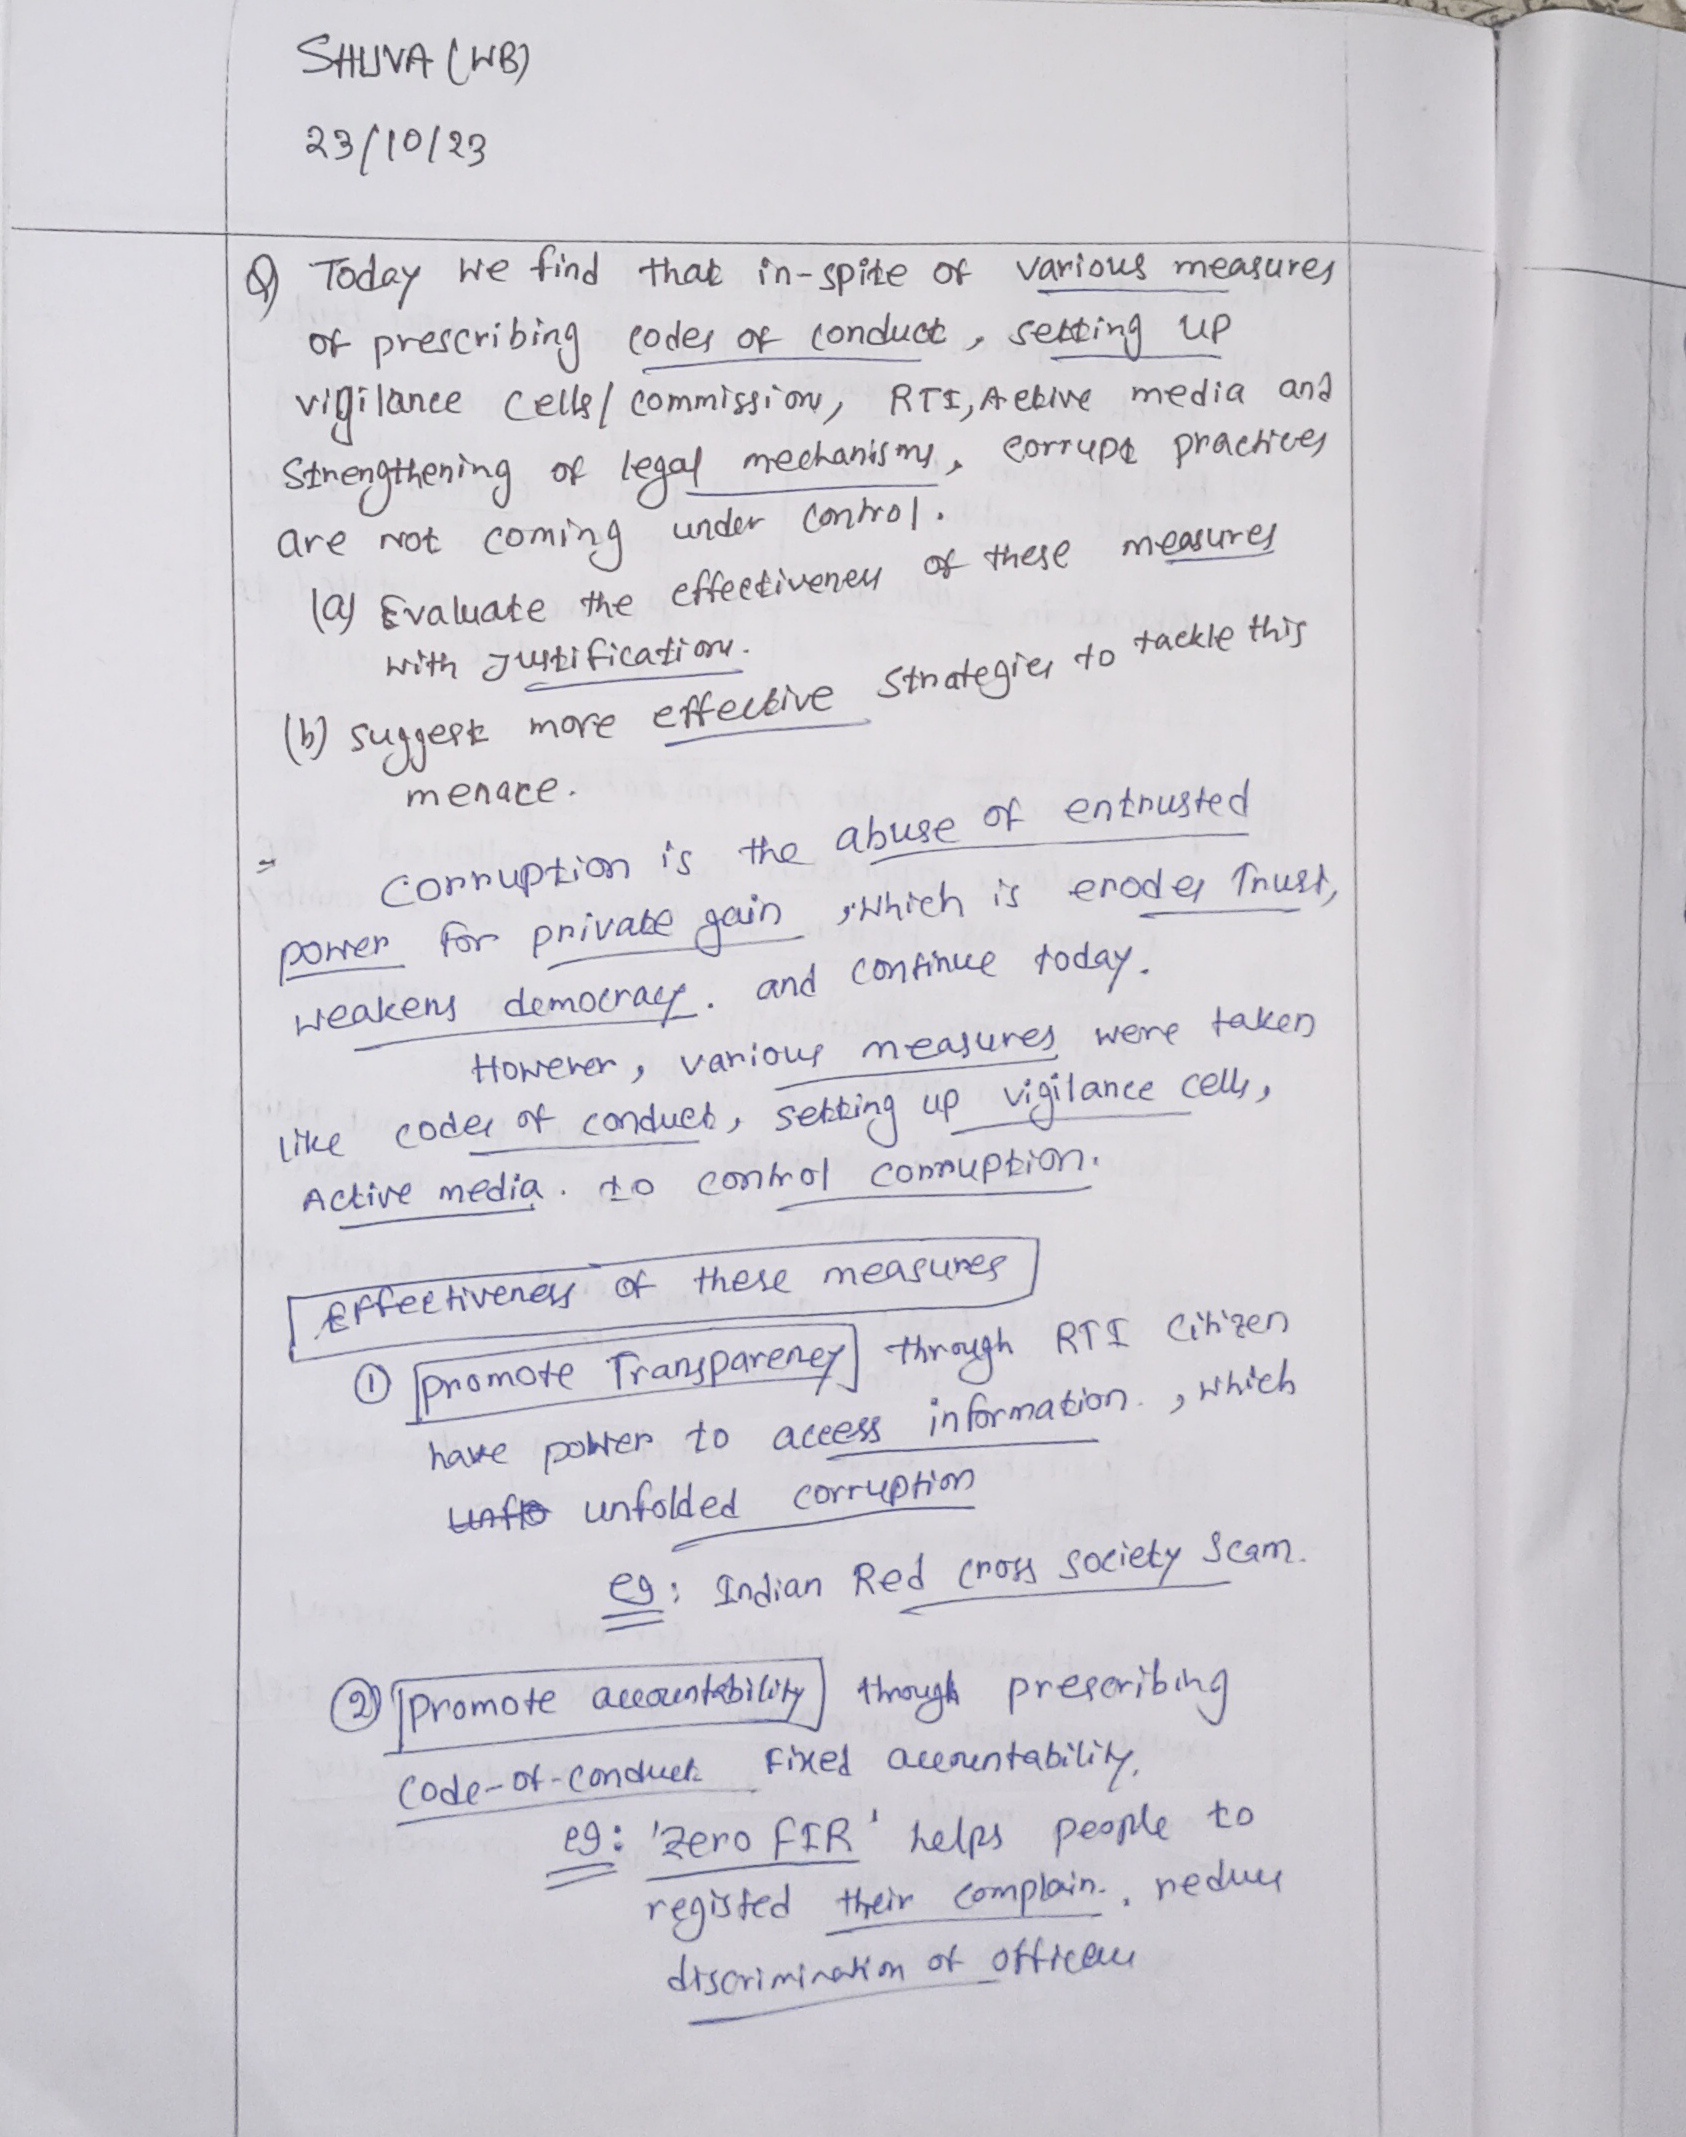 SHUVA (WB)
23/10/23
Q) Today we find that in-spite of various measures
of prescribing codes of conduct, setting up
vigilance cells/commission, RTI, Active media and
Strengthening of legal mechanisms, corrupt practices
are not coming under control.
(a) Evaluate the effectiveness of these measures
with justification.
(b) suggest more effective strategies to tackle this
menace.
Corruption is the abuse of entrusted
power for private gain, which is erodes trust,
weakens democracy. and continue today.
However, various measures were taken
like codes of conduct, setting up vigilance cells,
Active media. to control corruption.
Effectiveness of these measures
① promote Transparency through RTI citizen
have power to access information., which
unfolded corruption
eg: Indian Red cross society scam.
② promote accountability through prescribing
code-of-conduct fixed accountability.
eg: 'Zero FIR' helps people to
registed their complain., reduces
discrimination of officers